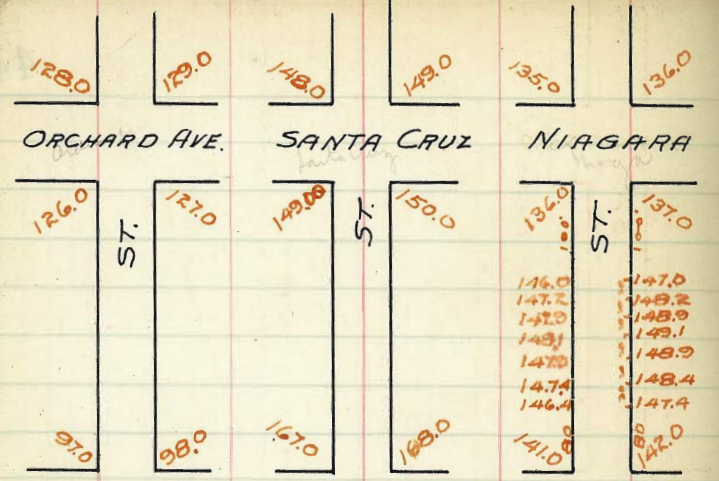 128.0 129.0 148.0 149.0 135.0 136.0
ORCHARD AVE. SANTA CRUZ NIAGARA
126.0 127.0 149.00 150.0 136.0 137.0
ST. ST. ST.
100. 100.
146.0 147.0
147.2 148.2
148.9
148.1 149.1
148.9
147.4 148.4
146.4 147.4
80 80
97.0 98.0 167.0 168.0 141.0 142.0